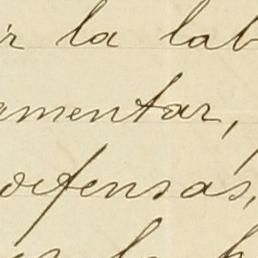 ir la lab
amentar,
defensas,